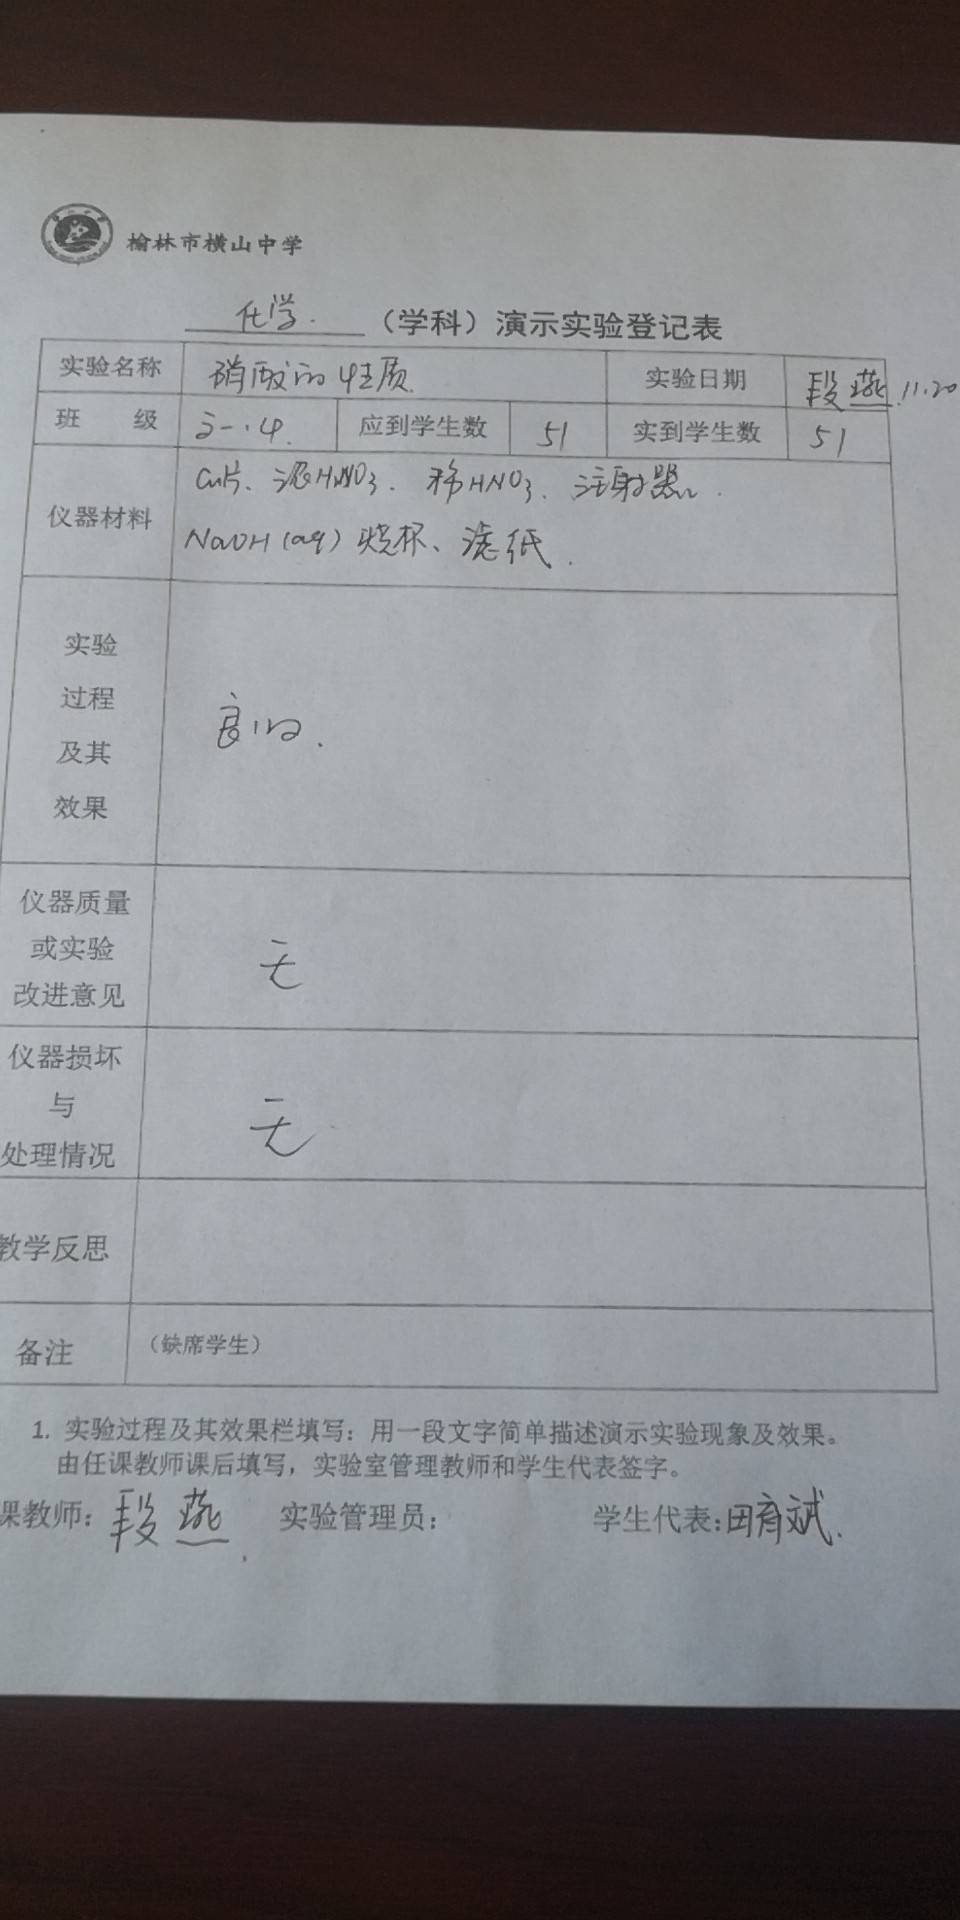 榆林市横山中学
化学.（学科）演示实验登记表
实验名称 硝酸的性质. 实验日期 段燕 11.20
班 级 高一.4. 应到学生数 51 实到学生数 51
仪器材料 Cu片、浓HNO3. 稀HNO3. 注射器.
NaOH (aq) 烧杯、滤纸.
实验
过程
及其
效果
良好.
仪器质量
或实验
改进意见
无
仪器损坏
与
处理情况
无
教学反思
备注 （缺席学生）
1. 实验过程及其效果栏填写：用一段文字简单描述演示实验现象及效果。
由任课教师课后填写，实验室管理教师和学生代表签字。
课教师：段燕. 实验管理员： 学生代表：田育斌.